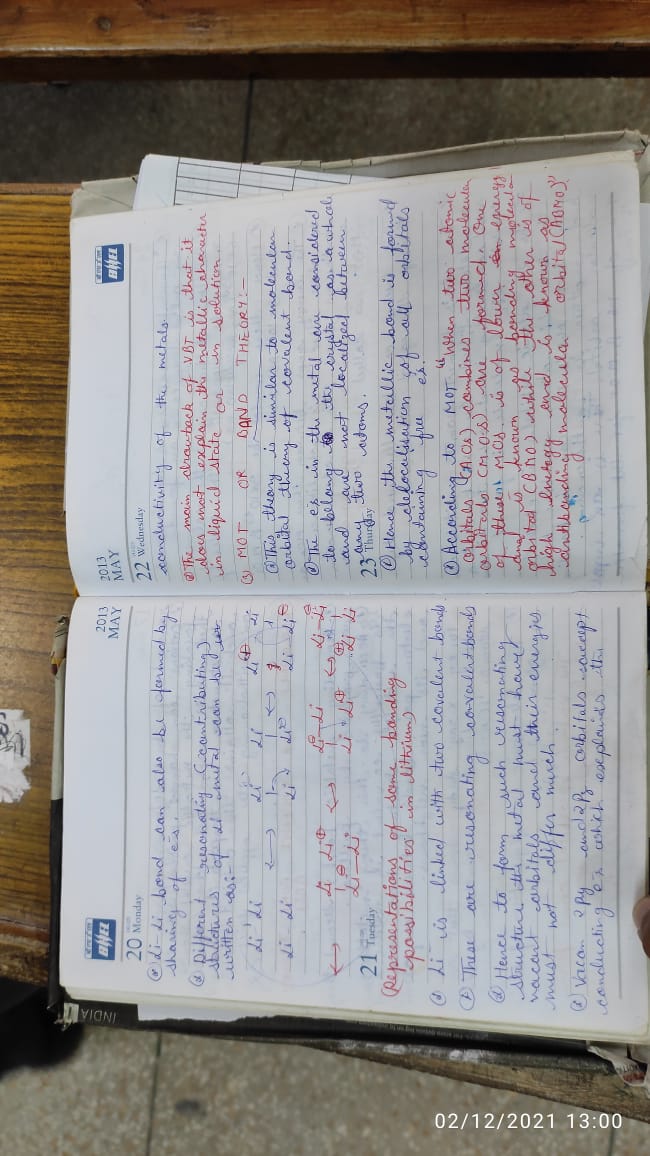 BHEL
20 Monday
2013
MAY
Li-Li bond can also be formed by
sharing of es.
Different resonating (contributing)
structures of Li metal can be
written as:-
Li Li ⟷ Li Li ⟷ Li Li⊕
Li Li Li Li Li Li⊖
⟷ Li Li⊕ ⟷ Li-Li ⟷ Li-Li
Li-Li Li Li⊕ Li Li
21 Tuesday
(Representations of some bonding
possibilities in lithium)
Li is linked with two covalent bonds.
These are resonating covalent bonds
Hence to form such resonating
structure the metal must have
vacant orbitals and their energies
must not differ much.
Vacan 2Py and 2Pz orbitals accept
conducting es which explains the
INDIA
2013
MAY
BHEL
22 Wednesday
conductivity of the metals.
The main drawback of VBT is that it
does not explain the metallic character
in liquid state or in solution.
③ MOT OR BAND THEORY:-
This theory is similar to molecular
orbital theory of covalent bond.
The es in the metal are considered
to belong to the crystal as a whole
and are not localized between
any two atoms.
23 Thursday
Hence the metallic bond is formed
by delocalisation of all orbitals
containing free es.
According to MOT "When two atomic
orbitals (A.Os) combines two molecular
orbitals (M.O.s) are formed. One
of these M.Os is of lower energy
and is known as bonding molecular
orbital (BMO) while the other is of
high energy and is known as
antibonding molecular orbital (ABMO)."
02/12/2021 13:00